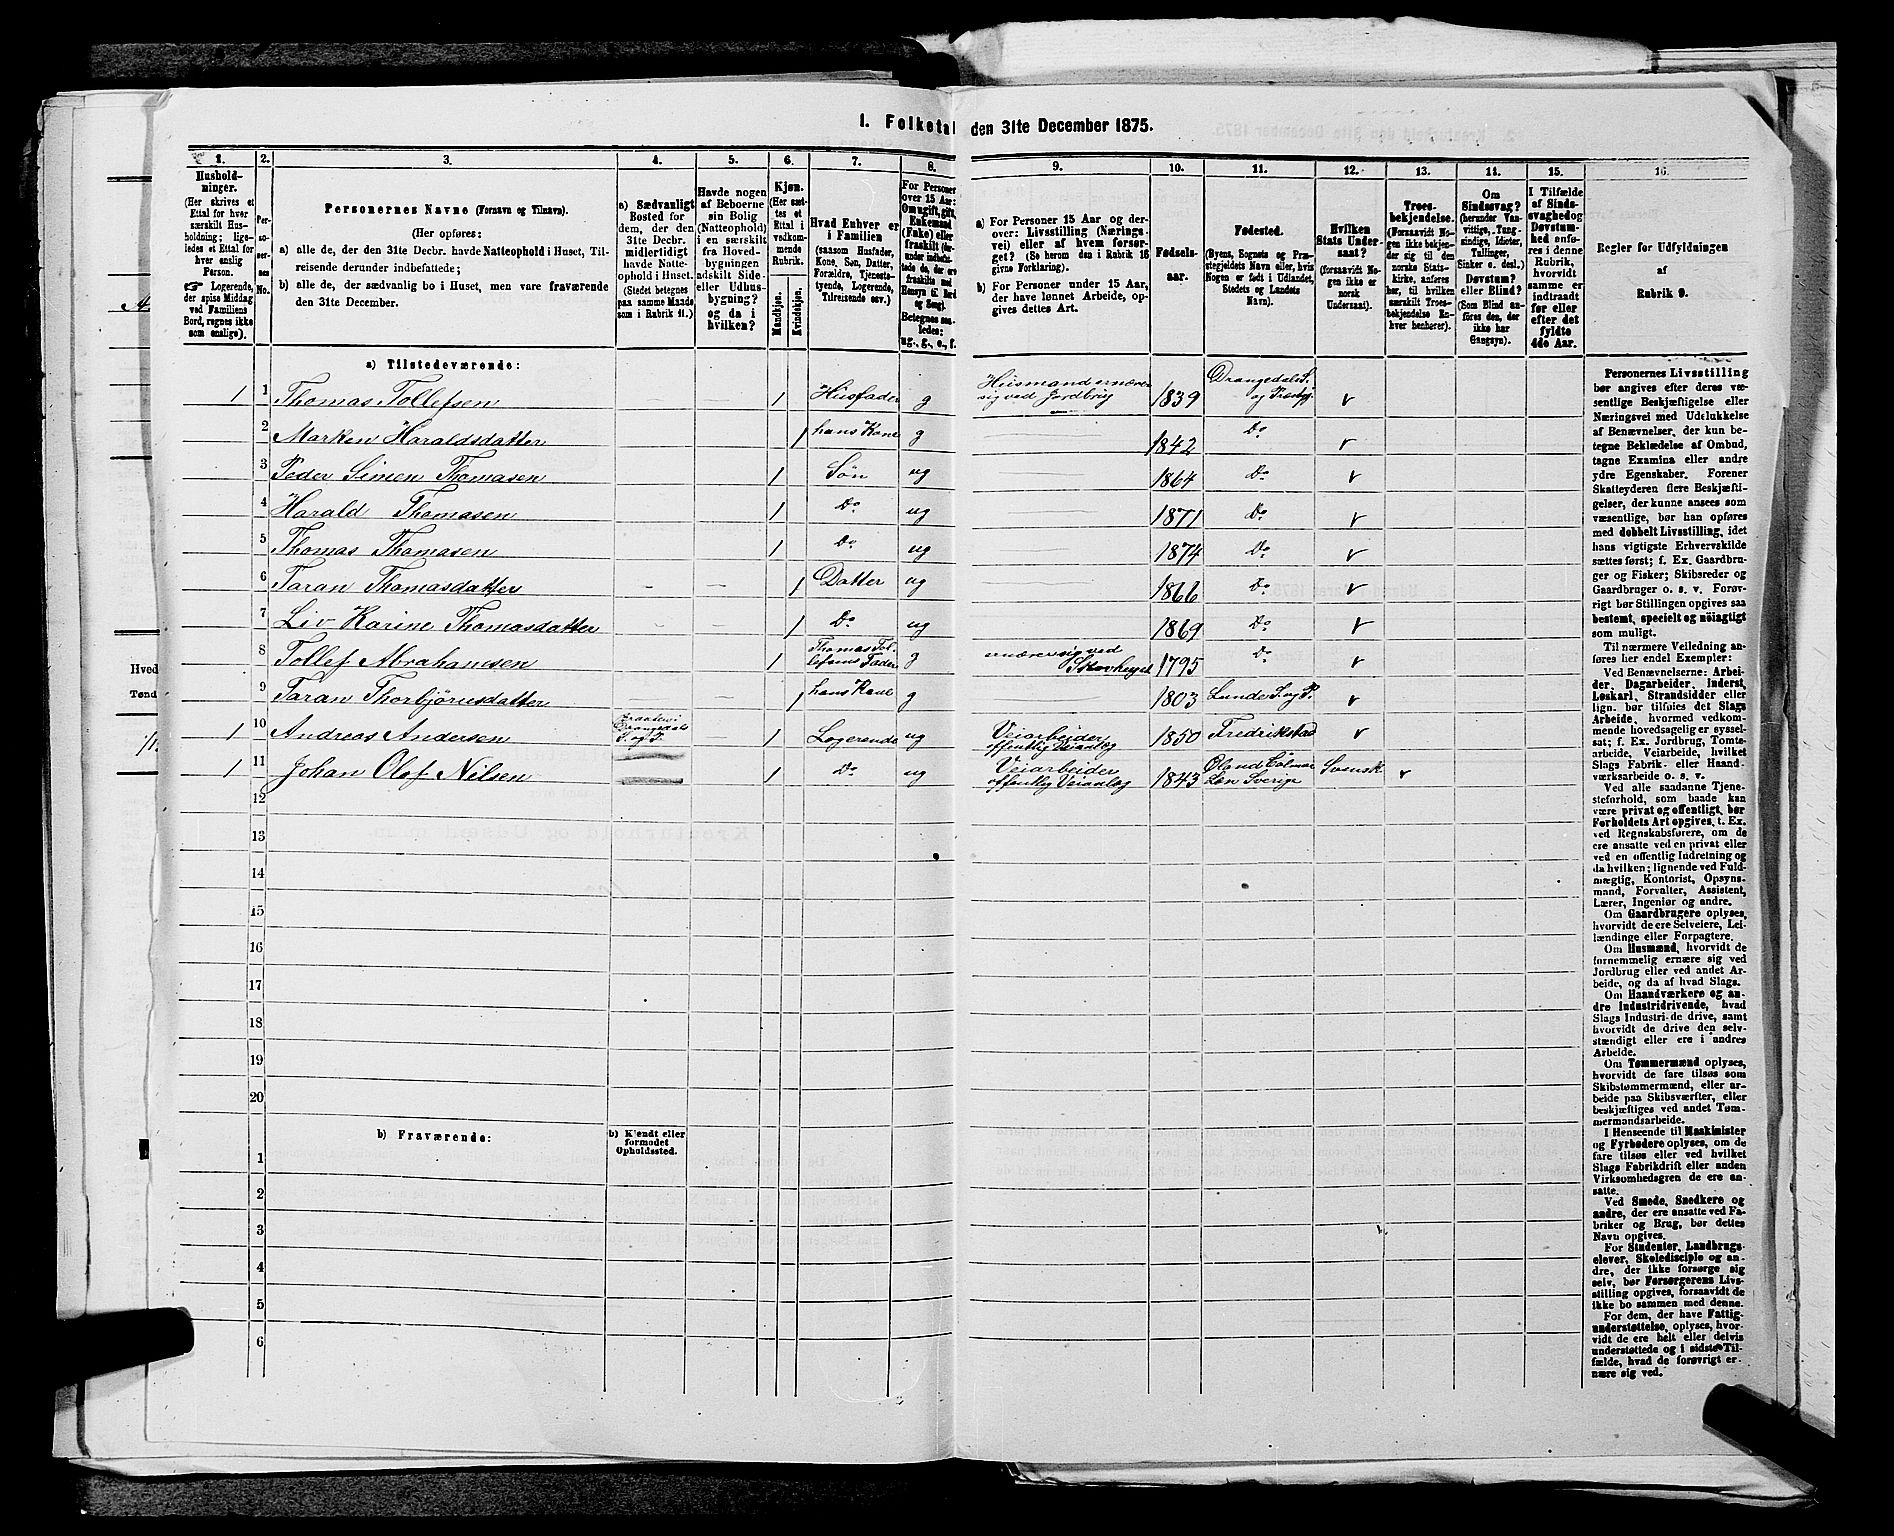 1. Folketal den 31te December 1875.
1. 2. 3. 4. 5. 6. 7. 8. 9. 10. 11. 12. 13. 14. 15. 16.
Hushold-
ninger.
(Her skrives et
Ettal for hver
særskilt Hus-
holdning; lige-
ledes et Ettal for
hver enslig
Person.
Logerende,
der spise Middag
ved Familiens
Bord, regnes ikke
som enslige).
Per-
so-
ner-
nes
No.
Personernes Navne (Fornavn og Tilnavn).
(Her opføres:
a) alle de, der den 31te Decbr. havde Natteophold i Huset, Til-
reisende derunder indbefattede;
b) alle de, der sædvanlig bo i Huset, men vare fraværende
den 31te December.
a) Sædvanligt
Bosted for
dem, der den
31te Decbr.
midlertidigt
havde Natte-
ophold i Huset.
(Stedet betegnes
paa samme Maade
som i Rubrik 11.)
Havde nogen
af Beboerne
sin Bolig
(Natteophold)
i en særskilt
fra Hoved-
bygningen
adskilt Side-
eller Udhus-
bygning?
og da i
hvilken?
Kjøn.
(Her sæt-
tes et
Ettal i
vedkom-
mende
Rubrik.
Mandkjøn.
Kvindekjøn.
Hvad Enhver er
i Familien
(saasom Husfader,
Kone, Søn, Datter,
Forældre, Tjeneste-
tyende, Logerende,
Tilreisende osv.)
For Personer
over 15 Aar:
Om ugift, gift,
Enkemand
(Enke) eller
fraskilt
Betegnes saa-
ledes:
ug., g., e., f.
a) For Personer 15 Aar og der-
over: Livsstilling (Nærings-
vei) eller af hvem forsør-
get? (Se herom den i Rubrik 16
givne Forklaring).
b) For Personer under 15 Aar,
der have lønnet Arbeide, op-
gives dettes Art.
Fødsels-
aar.
Fødested.
(Byens, Sognets og Præ-
stegjeldets Navn eller, hvis
Nogen er født i Udlandet,
Stedets og Landets
Navn).
Hvilken
Stats Under-
saat?
(forsaavidt No-
gen ikke er
norsk
Undersaat).
Troes-
bekjendelse.
(Forsaavidt No-
gen ikke bekjen-
der sig til den
norske Stats-
kirke, anføres
her, til hvilken
særskilt Troes-
bekjendelse En-
hver henhører).
Om
Sindssvag?
(herunder Van-
vittige, Tung-
sindige, Idioter,
Tullinger,
Sinker o. desl.)
Døvstum?
eller Blind?
(Som Blind an-
føres den, der
ikke har
Gangsyn).
I Tilfælde
af Sinds-
svaghed og
Døvstum-
hed anfø-
res i denne
Rubrik,
hvorvidt
samme er
indtraadt
før eller
efter det
fyldte
4de Aar.
Regler for Udfyldningen
af
Rubrik 9.
a) Tilstedeværende:
1 1 Thomas Tollefsen 1 Husfader g Husmand ernærer sig ved Jordbrug 1839 Drangedals S. og Præstgj.
2 Marken Haraldsdatter 1 hans Kone g 1842 Do
3 Peder Simen Thomasen 1 Søn ug 1864 Do
4 Harald Thomasen 1 Do ug 1871 Do
5 Thomas Thomasen 1 Do ug 1874 Do
6 Taran Thomasdatter 1 Datter ug 1866 Do
7 Liv Karine Thomasdatter 1 Do ug 1869 Do
8 Tollef Abrahamsen 1 Thomas Tollefsens Fader g ernærer sig ved 1795 Do
9 Taran Thorbjørnsdatter 1 hans Kone g 1803 Lunde S. og P.
1 10 Andreas Andersen Drangedals S. og P. 1 Logerende ug Veiarbeider offentlig Veianlæg 1850 Fredrikstad
1 11 Johan Olof Nilsen 1 Do ug Veiarbeider offentlig Veianlæg 1843 Øland Calmar Len Sverige Svensk
12
13
14
15
16
17
18
19
20
b) Fraværende:
b) Kjendt eller
formodet
Opholdssted.
1
2
3
4
5
6
Personernes Livsstilling
bør angives efter deres væ-
sentlige Beskjæftigelse eller
Næringsvei med Udelukkelse
af Benævnelser, der kun be-
tegne Beklædelse af Ombud,
tagne Examina eller andre
ydre Egenskaber. Forener
Skatteyderen flere Beskjæfti-
gelser, der kunne ansees som
væsentlige, bør han opføres
med dobbelt Livsstilling, idet
hans vigtigste Erhvervskilde
sættes først; f. Ex. Gaardbru-
ger og Fisker; Skibsreder og
Gaardbruger o. s. v. Forøv-
rigt bør Stillingen opgives saa
bestemt, specielt og nöiagtigt
som muligt.
Til nærmere Veiledning an-
føres her endel Exempler:
Ved Benævnelserne: Arbei-
der, Dagarbeider, Inderst,
Løskarl, Strandsidder eller
lign. bør tilføies det Slags
Arbeide, hvormed vedkom-
mende hovedsagelig er syssel-
sat; f. Ex. Jordbrug, Tomte-
arbeide, Veiarbeide, hvilket
Slags Fabrik- eller Haand-
værksarbeide o. s. v.
Ved alle saadanne Tjene-
steforhold, som baade kan
være privat og offentligt, bør
Forholdets Art opgives, t. Ex.
ved Regnskabsførere, om de
ere ansatte ved en privat eller
ved en offentlig Indretning og
da hvilken; lignende ved Fuld-
mægtig, Kontorist, Opsyns-
mand, Forvalter, Assistent,
Lærer, Ingeniør og andre.
Om Gaardbrugere oplyses,
hvorvidt de ere Selveiere, Lei-
lændinge eller Forpagtere.
Om Husmænd, hvorvidt de
fornemmelig ernære sig ved
Jordbrug eller ved andet Ar-
beide, og da af hvad Slags.
Om Haandværkere og an-
dre Industridrivende, hvad
Slags Industri de drive, samt
hvorvidt de drive den selv-
stændigt eller ere i andres
Arbeide.
Om Tømmermænd oplyses,
hvorvidt de fare tilsøs som
Skibstømmermænd, eller ar-
beide paa Skibsværfter, eller
beskjæftiges ved andet Tøm-
mermandsarbeide.
I Henseende til Maskinister
og Fyrbødere oplyses, om de
fare tilsøs eller ved hvilket
Slags Fabrikdrift eller anden
Virksomhedsgren de ere an-
satte.
Ved Smede, Snedkere og
andre, der ere ansatte ved Fa-
briker og Brug, bør dettes
Navn opgives.
For Studenter, Landbrugs-
elever, Skoledisciple og an-
dre, der ikke forsørge sig
selv, bør Forsørgerens Livs-
stilling opgives, forsaavidt de
ikke bo sammen med denne.
For dem, der have Fattig-
understøttelse, oplyses, hvor-
vidt de ere helt eller delvis
understøttede og i sidste Til-
fælde, hvad de forøvrigt er-
nære sig ved.
Hved
Tønd